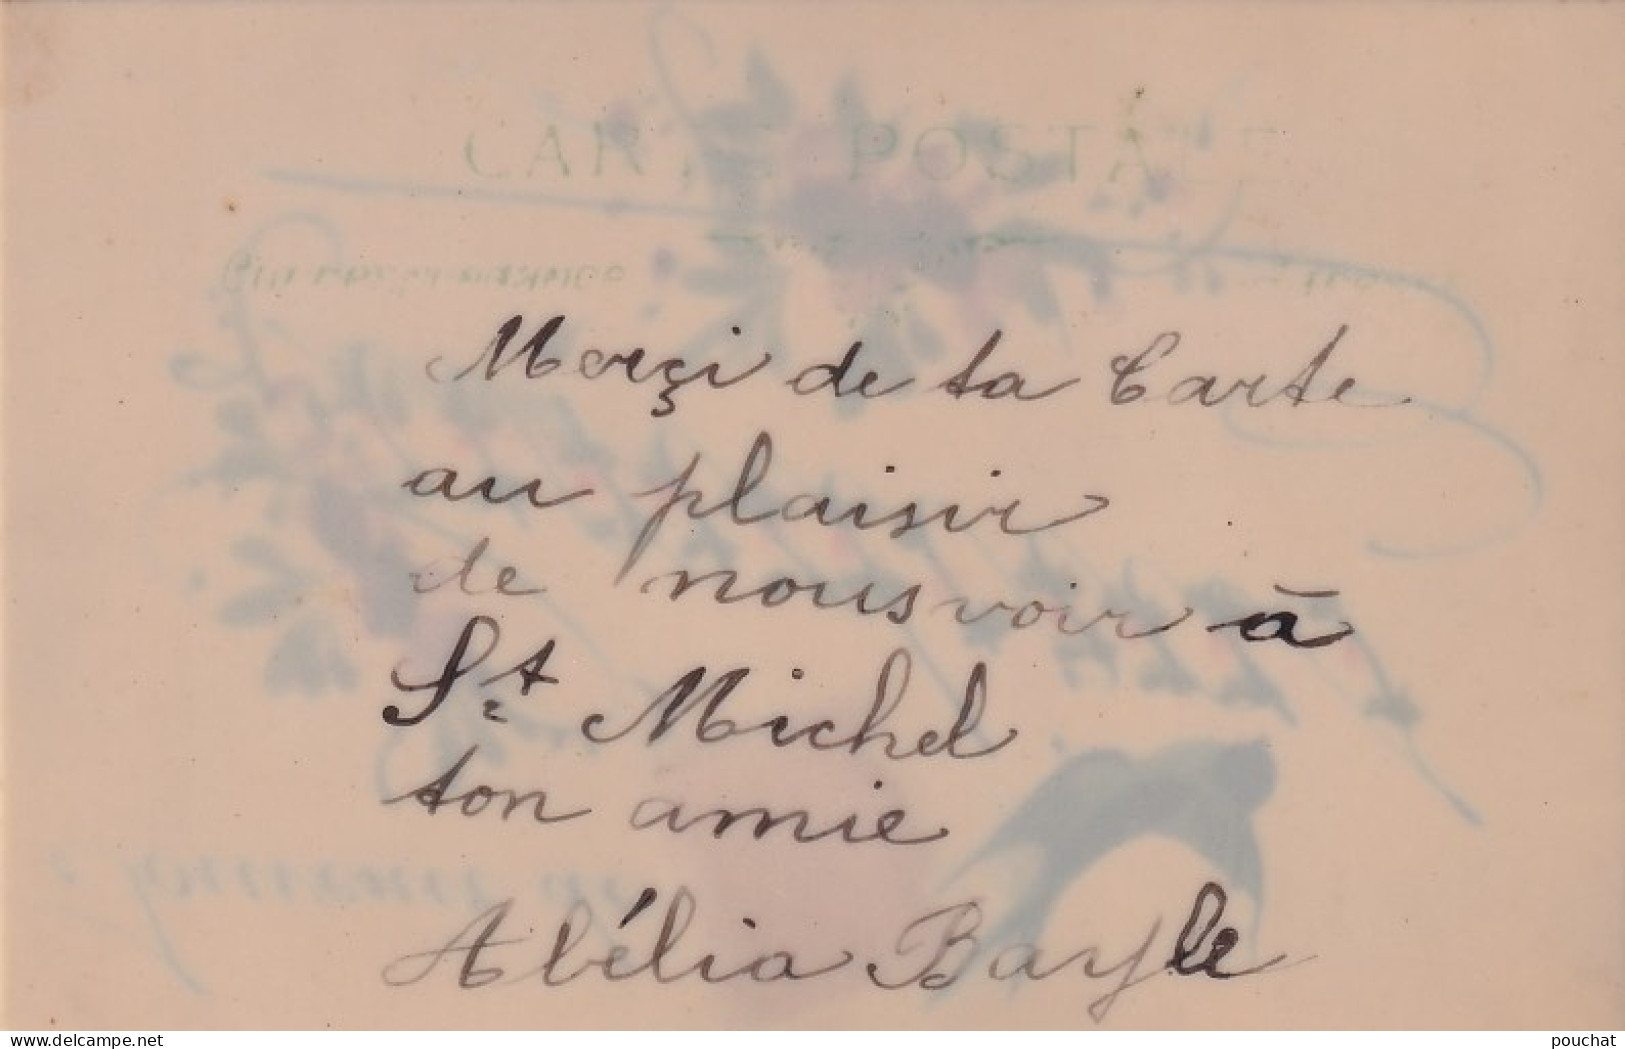 CARTE POSTALE
Merçi de ta Carte
au plaisir
de nous voir à
St Michel
ton amie
Abélia Bayle
delcampe.net
pouchat